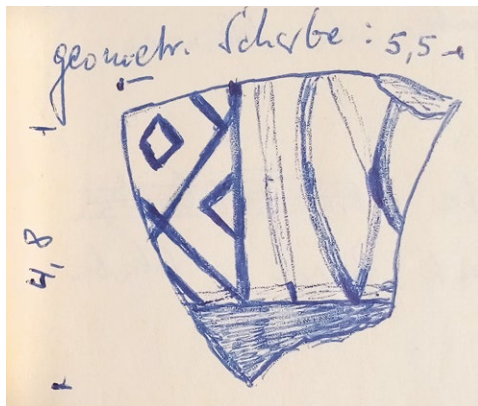 geometr. Scherbe : 5,5
4,8